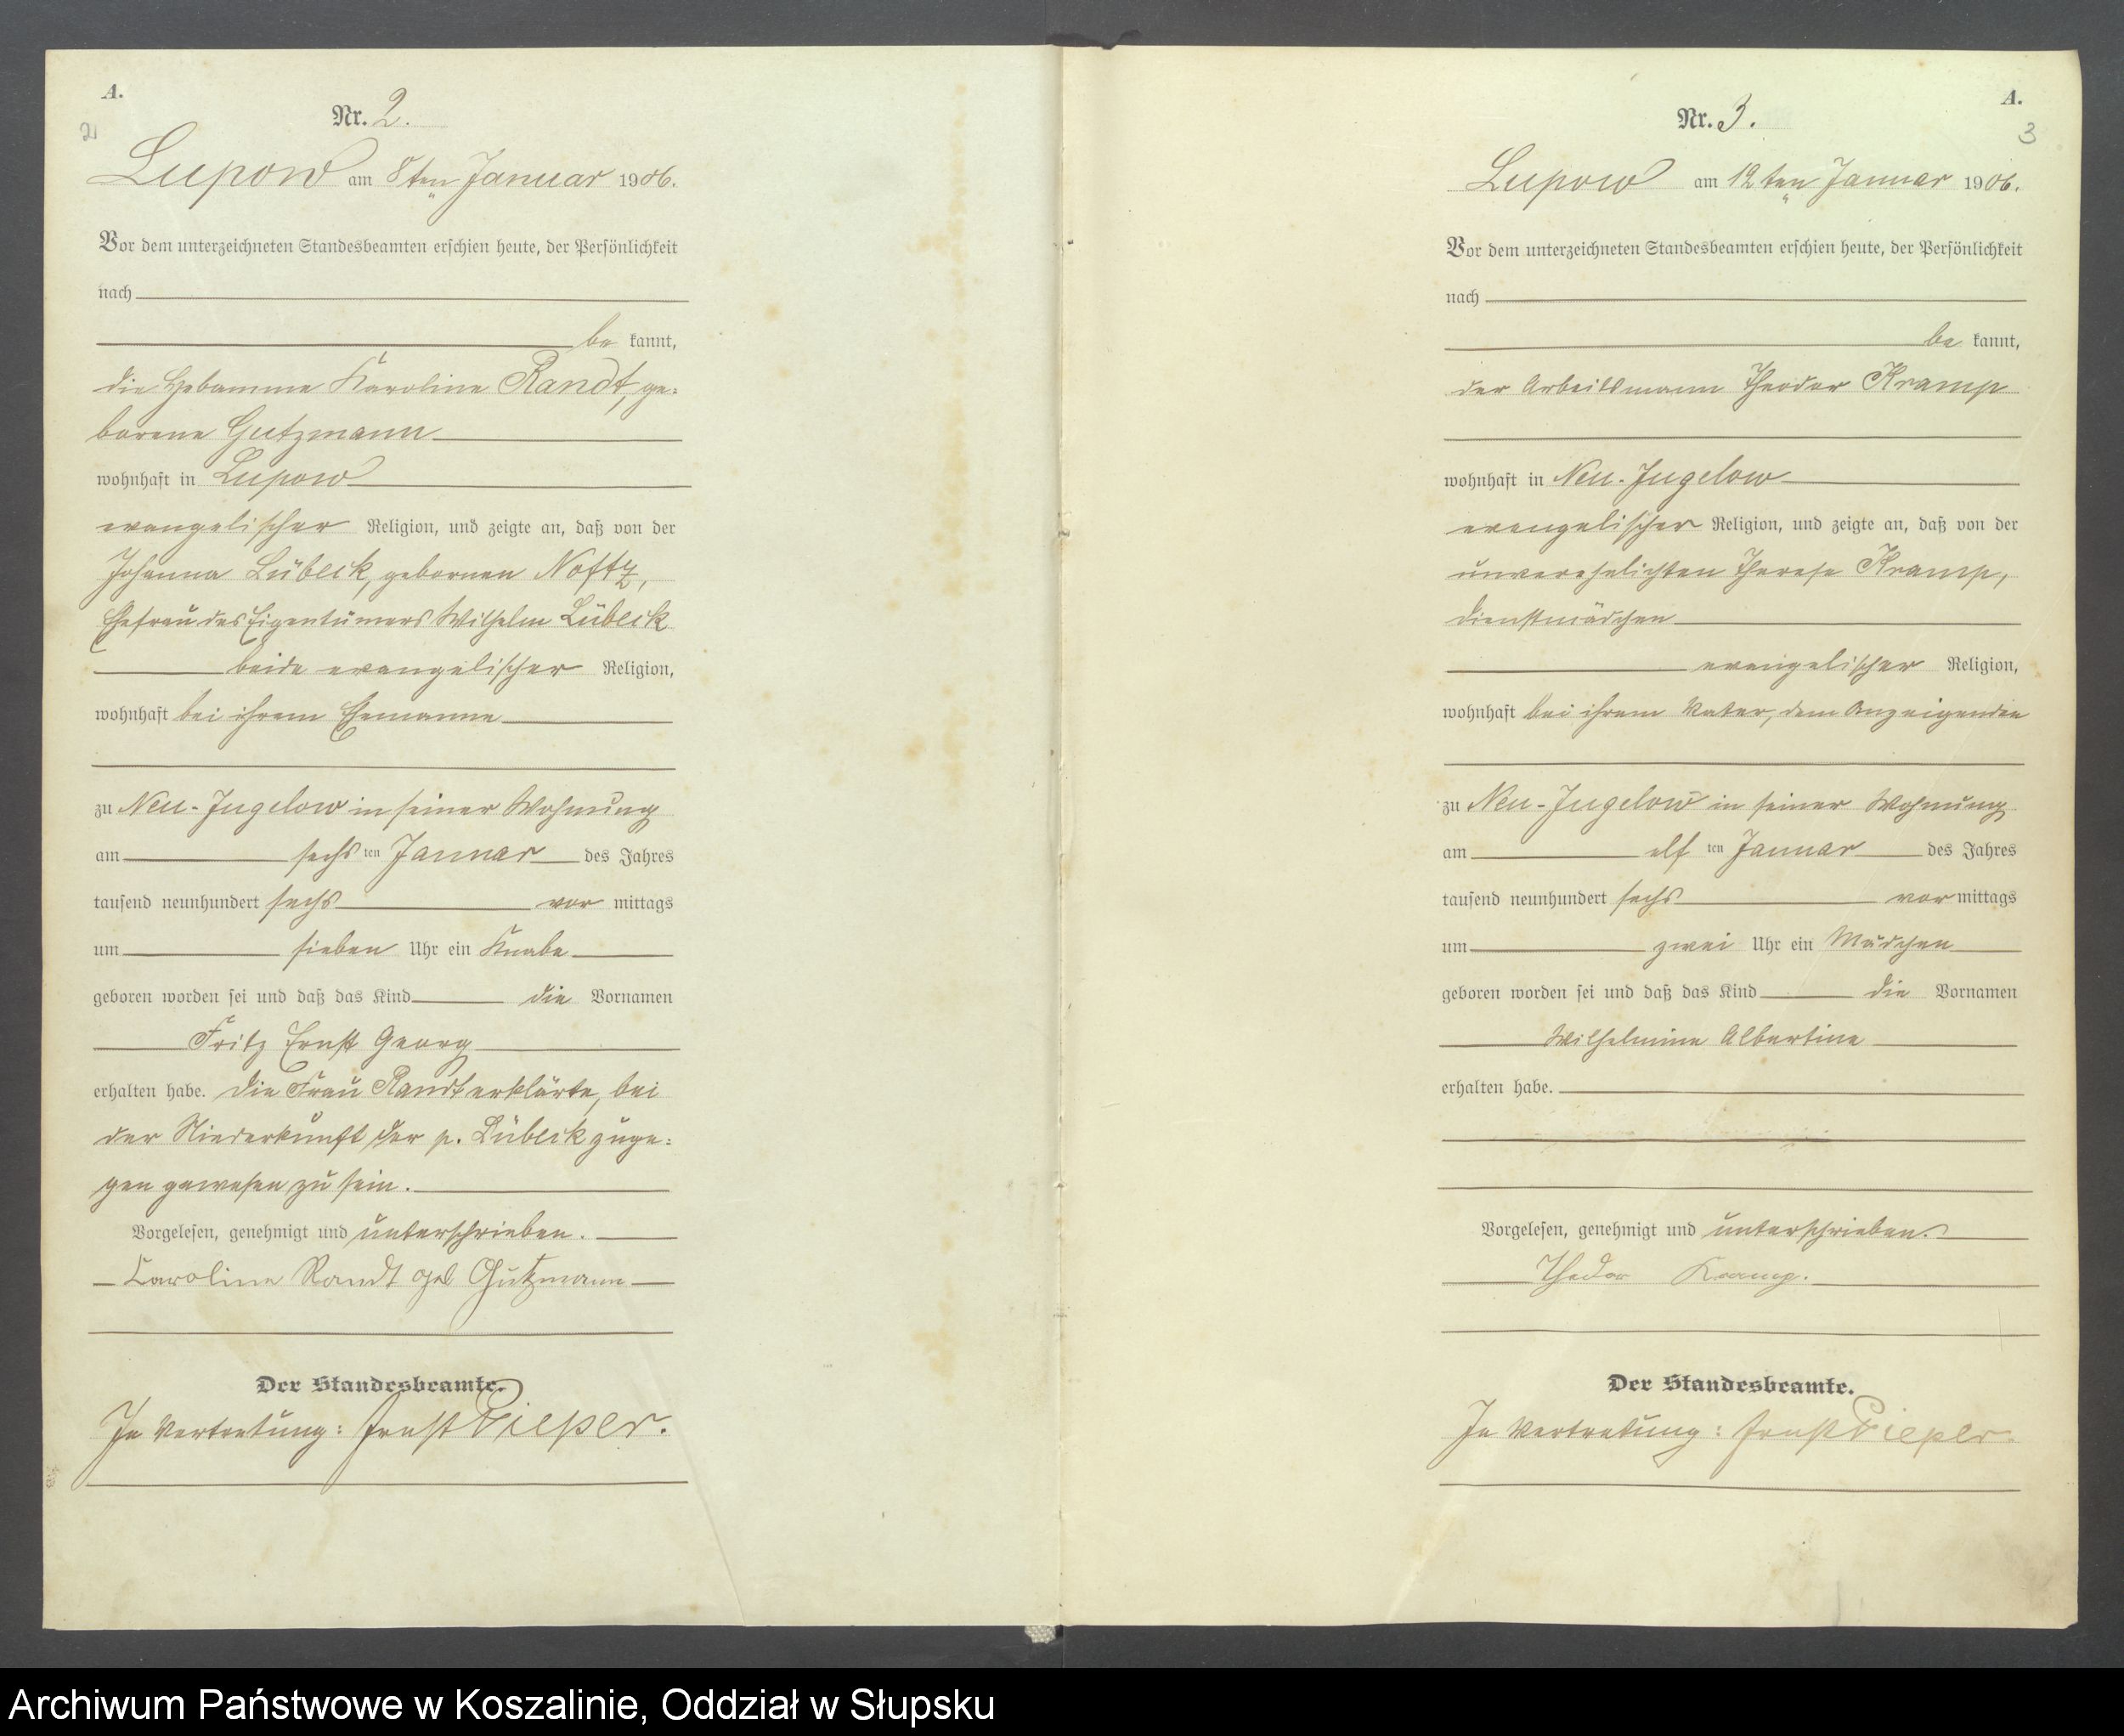 A.
2
Nr. 2.
Lupow am 8ten Januar 1906.
Vor dem unterzeichneten Standesbeamten erschien heute, der Persönlichkeit
nach
be kannt,
die Hebamme Karoline Randt, ge-
borene Gutzmann
wohnhaft in Lupow
evangelischer Religion, und zeigte an, daß von der
Johanna Lübeck, gebornen Nofftz,
Ehefrau des Eigentümers Wilhelm Lübeck
beide evangelischer Religion,
wohnhaft bei ihrem Ehemanne
zu Neu-Jugelow in seiner Wohnung
am sechs ten Januar des Jahres
tausend neunhundert sechs vor mittags
um sieben Uhr ein Knabe
geboren worden sei und daß das Kind die Vornamen
Fritz Ernst Georg
erhalten habe. Die Frau Randt erklärte, bei
der Niederkunft der p. Lübeck zuge-
gen gewesen zu sein.
Vorgelesen, genehmigt und unterschrieben.
Caroline Randt geb Gutzmann
Der Standesbeamte.
In Vertretung: Ernst Pieper.
A.
3
Nr. 3.
Lupow am 12ten Januar 1906.
Vor dem unterzeichneten Standesbeamten erschien heute, der Persönlichkeit
nach
be kannt,
der Arbeitsmann Theodor Kramp
wohnhaft in Neu-Jugelow
evangelischer Religion, und zeigte an, daß von der
unverehelichten Therese Kramp,
Dienstmädchen
evangelischer Religion,
wohnhaft bei ihrem Vater, dem Anzeigenden
zu Neu-Jugelow in seiner Wohnung
am elf ten Januar des Jahres
tausend neunhundert sechs vor mittags
um zwei Uhr ein Mädchen
geboren worden sei und daß das Kind die Vornamen
Wilhelmine Albertine
erhalten habe.
Vorgelesen, genehmigt und unterschrieben.
Theodor Kramp.
Der Standesbeamte.
In Vertretung: Ernst Pieper.
Archiwum Państwowe w Koszalinie, Oddział w Słupsku